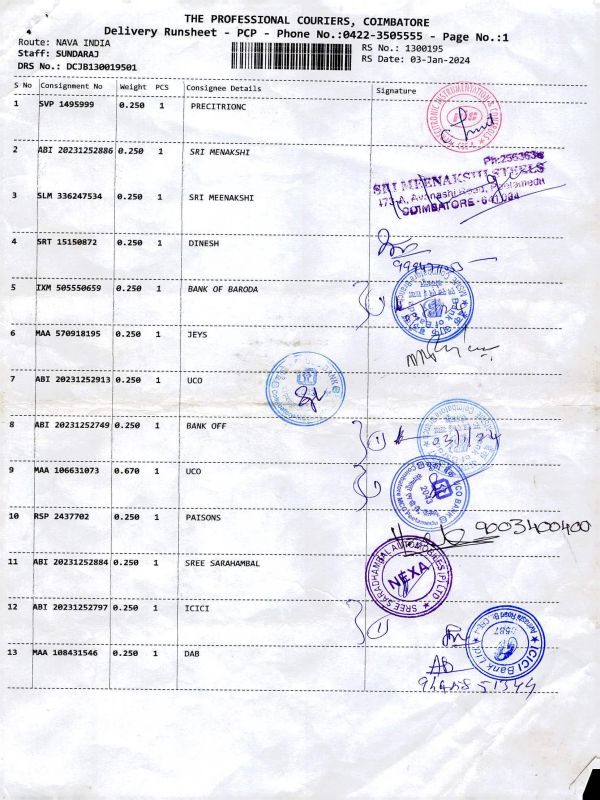 THE PROFESSIONAL COURIERS, COIMBATORE
Delivery Runsheet - PCP - Phone No.:0422-3505555 - Page No.:1
Route: NAVA INDIA
RS No.: 1300195
Staff: SUNDARAJ
RS Date: 03-Jan-2024
DRS No.: DCJB130019501
S No Consignment No Weight PCS Consignee Details Signature
1 SVP 1495999 0.250 1 PRECITRIONC
2 ABI 20231252886 0.250 1 SRI MENAKSHI
Ph:2563636
SRI MEENAKSHI STEELS
3 SLM 336247534 0.250 1 SRI MEENAKSHI
173-A, Avanashi Road, Peelamedu
COIMBATORE - 641 004
4 SRT 15150872 0.250 1 DINESH
5 IXM 505550659 0.250 1 BANK OF BARODA
Bank of Baroda
6 MAA 570918195 1 JEYS
7 ABI 20231252913 0.250 1 UCO
8 ABI 20231252749 0.250 1 BANK OFF
03/1/24
9 MAA 106631073 0.670 1 UCO
UCO BANK
10 RSP 2437702 0.250 1 PAISONS
9003400400
11 ABI 20231252884 0.250 1 SREE SARAHAMBAL
SREE SARADHAMBAL AUTOMOBILES (P) LTD
NEXA
12 ABI 20231252797 0.250 1 ICICI
ICICI Bank Ltd
13 MAA 108431546 0.250 1 DAB